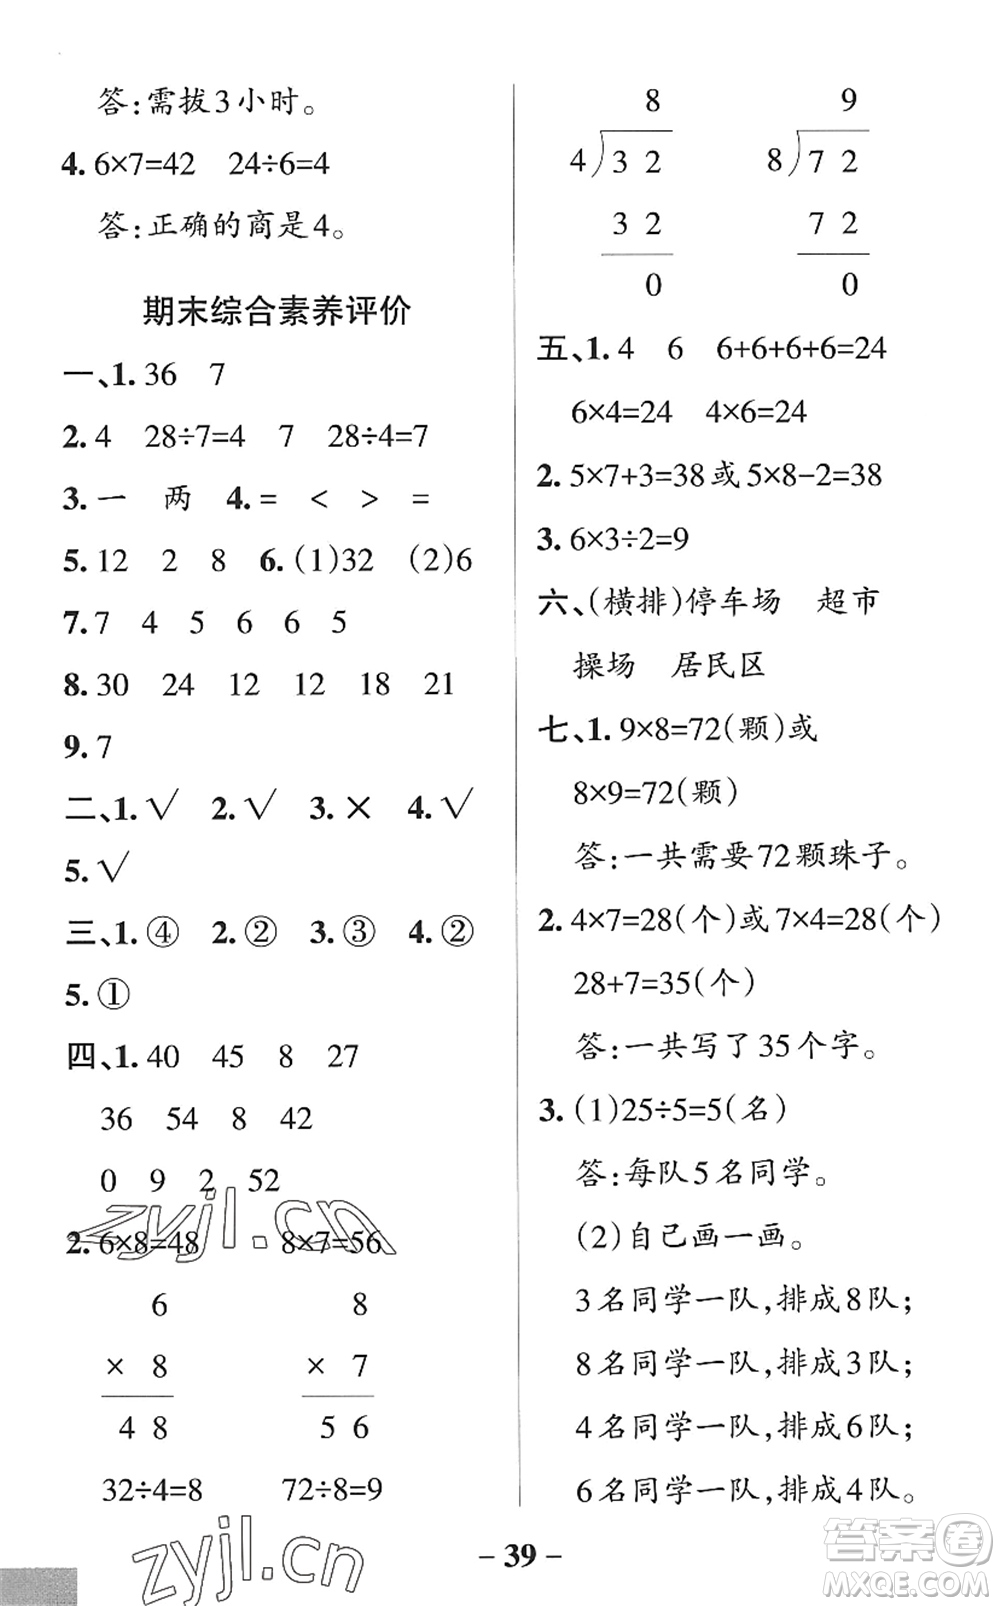 答:需拔3小时。
4. 6×7=42 24÷6=4
答:正确的商是4。
期末综合素养评价
一、1. 36 7
2. 4 28÷7=4 7 28÷4=7
3. 一 两 4. = < > =
5. 12 2 8 6. (1)32 (2)6
7. 7 4 5 6 6 5
8. 30 24 12 12 18 21
9. 7
二、1. √ 2. √ 3. × 4. √
5. √
三、1. ④ 2. ② 3. ③ 4. ②
5. ①
四、1. 40 45 8 27
36 54 8 42
0 9 2 52
zyjl.cn
2. 6×8=48 8×7=56
6 8
× 8 × 7
4 8 5 6
32÷4=8 72÷8=9
zyjl.cn
8 9
4)3 2 8)7 2
3 2 7 2
0 0
五、1. 4 6 6+6+6+6=24
6×4=24 4×6=24
2. 5×7+3=38或5×8-2=38
3. 6×3÷2=9
六、(横排)停车场 超市
操场 居民区
七、1. 9×8=72(颗)或
8×9=72(颗)
答:一共需要72颗珠子。
2. 4×7=28(个)或7×4=28(个)
28+7=35(个)
答:一共写了35个字。
3. (1)25÷5=5(名)
答:每队5名同学。
(2)自己画一画。
3名同学一队,排成8队;
8名同学一队,排成3队;
4名同学一队,排成6队;
6名同学一队,排成4队。
- 39 -
答案卷
MXQE.COM